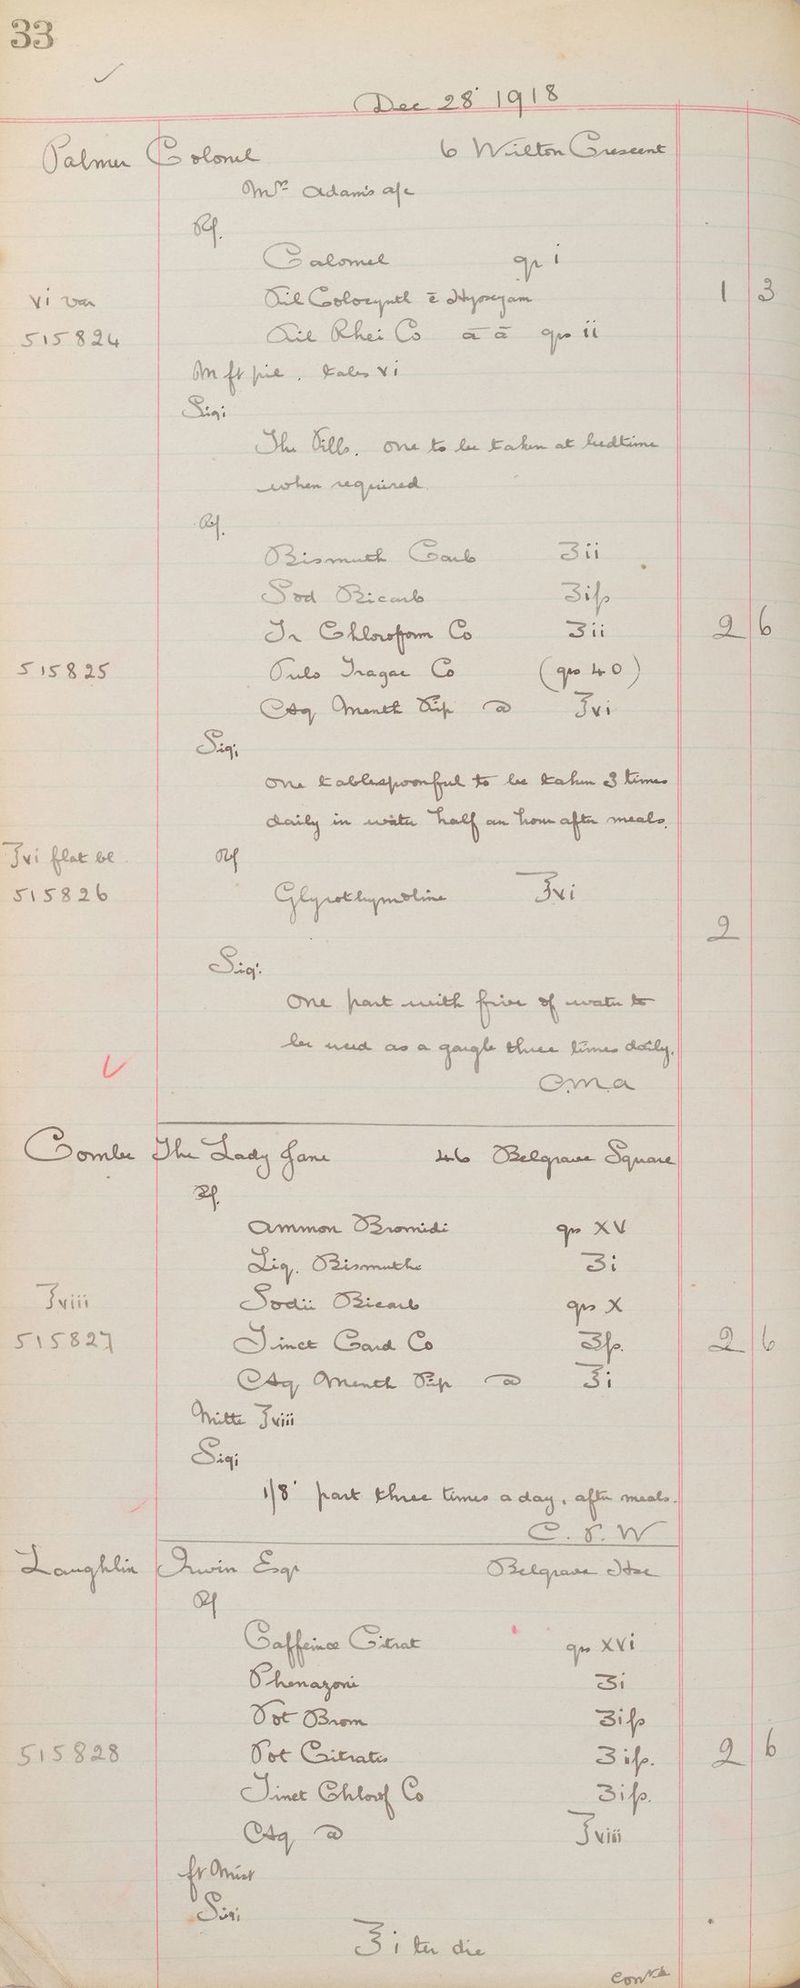 33
Dec 28 1918
Palmer Colonel 6 Wilton Crescent
Mrs Adams a/c
Rf.
Calomel gr i
vi Pil Colocynth c̄ Hyoscyam 1 3
515824 Pil Rhei Co āā grs ii
M ft pil. tales vi
Sig:
The Pills. one to be taken at bedtime
when required.
Rf.
Bismuth Carb ʒii
Sod Bicarb ʒifs
Tr Chloroform Co ʒii 2 6
515825 Pulv Tragac Co (grs 40)
Aq Menth Pip @ ℥vi
Sig:
one tablespoonful to be taken 3 times
daily in water half an hour after meals.
℥vi flat bl Rf
515826 Glycothymoline ℥vi
2
Sig:
One part with five of water to
be used as a gargle three times daily.
C.M.A
Combe The Lady Jane 46 Belgrave Square
Rf.
Ammon Bromidi grs XV
Liq. Bismuthi ʒi
℥viii Sodii Bicarb grs X
515827 Tinct Card Co ʒfs. 2 6
Aq Menth Pip @ ℥i
Mitte ℥viii
Sig:
1/8 part three times a day, after meals.
C. P. W
Laughlin Irwin Esqr Belgrave Hse
Rf
Caffeinae Citrat grs xvi
Phenazoni ʒi
Pot Brom ʒifs
515828 Pot Citratis ʒifs. 2 6
Tinct Chlorof Co ʒifs.
Aq @ ℥viii
ft Mist
Sig:
℥i ter die